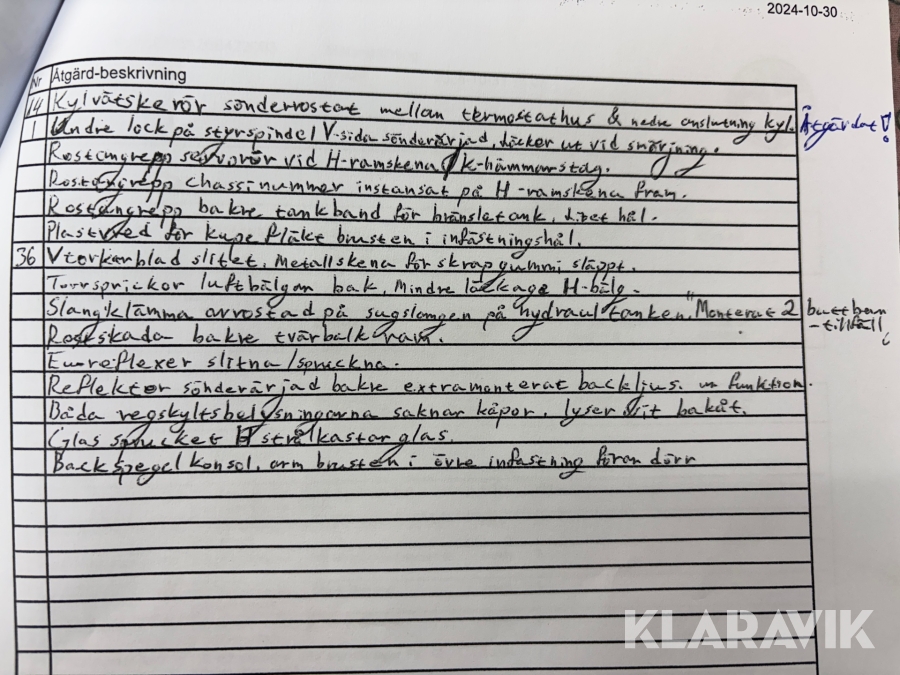 2024-10-30
Nr Åtgärd-beskrivning
14 Kylvätske rör sönderrostat mellan termostathus & nedre anslutning kyl. Åtgärdat!
1 Undre lock på styrspindel V-sida sönderärjad, läcker ut vid smörjning.
Rostangrepp servorör vid H-ramskena / K-hammarstag.
Rostangrepp chassinummer instansat på H-ramskena fram.
Rostangrepp bakre tankband för bränsletank, litet hål.
Plastvred för kupefläkt brusten i infästningshål.
36 V torkarblad slitet, Metallskena för skrapgummi släppt.
Torrsprickor luftbälgar bak, Mindre läckage H-bälg.
Slangklämma avrostad på sugslangen på hydraultanken, "Monterat 2
Rostskada bakre tvärbalk ram.
-tillfäll
reflexer slitna/spruckna.
Reflektor sönderärjad bakre extramonterat backljus. ur funktion.
Båda regskyltsbelysningarna saknar kåpor, lyser vit bakåt.
Glas sprucket H strålkastarglas.
Backspegel konsol, arm brusten i övre infästning förar dörr
KLARAVIK